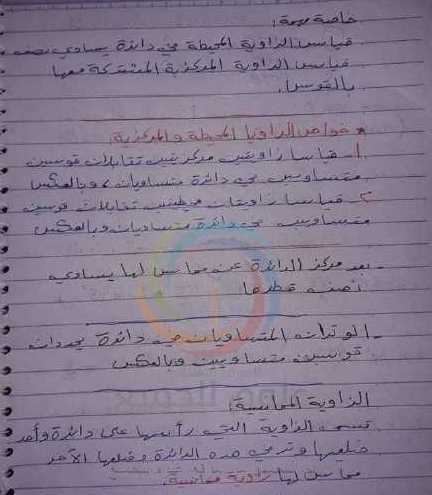 خاصة مهمة:
قياس الزاوية المحيطة في دائرة يساوي نصف
قياس الزاوية المركزية المشتركة معها
بالقوس.
* خواص الزوايا المحيطة والمركزية:
1- قياسا زاويتين مركزيتين تقابلان قوسين
متساويين في دائرة متساويان وبالعكس
2- قياسا زاويتان محيطيتين تقابلان قوسين
متساويين في دائرة متساويان وبالعكس
- بعد مركز الدائرة عن مماس لها يساوي
نصف قطرها
- الوتران المتساويان في دائرة يحددان
قوسين متساويين وبالعكس
الزاوية المماسية:
تسمى الزاوية التي رأسها على دائرة وأحد
ضلعيها وتر في هذه الدائرة وضلعها الآخر
مماس لها زاوية مماسية.